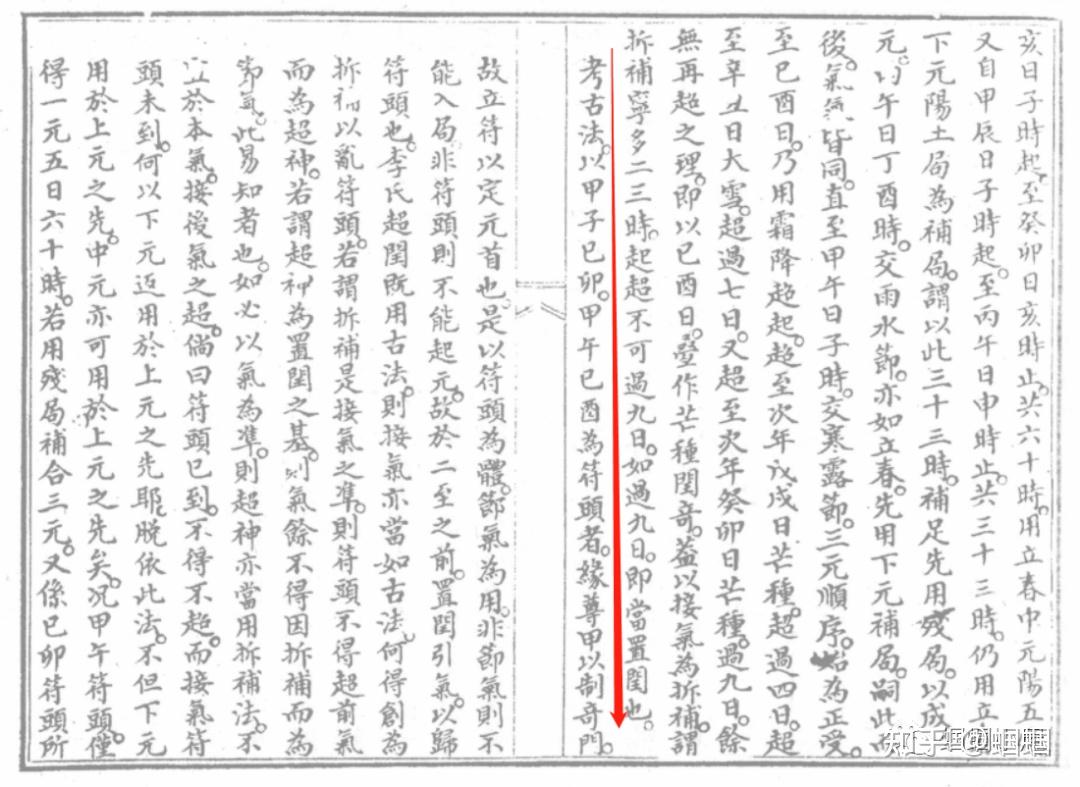 亥日子時起至癸卯日亥時止共六十時用立春中元陽五
又自甲辰日子時起至丙午日申時止共三十三時仍用立
下元陽土局為補局謂以此三十三時補足先用殘局以成
元午日丁酉時交雨水節亦如立春先用下元補局嗣此而
後氣氣皆同直至甲午日子時交寒露節三元順序始為正受
至巳酉日乃用霜降趁起超至次年戊戌日芒種超過四日超
至辛丑日大雪超過七日又超至次年癸卯日芒種過九日餘
無再超之理即以巳酉日疊作芒種閏奇蓋以接氣為拆補謂
拆補寧多二三時起超不可過九日如過九日即當置閏也
考古法以甲子巳卯甲午巳酉為符頭者緣尊甲以制奇門
故立符以定元首也是以符頭為體節氣為用非節氣則不
能入局非符頭則不能起元故於二至之前置閏引氣以歸
符頭也李氏超閏既用古法則接氣亦當如古法何得創為
拆補以亂符頭若謂拆補是接氣之準則符頭不得超前氣
而為超神若謂超神為置閏之基則氣餘不得因拆補而為
節氣此易知者也如必以氣為準則超神亦當用拆補法不
宜於本氣接後氣之超倘曰符頭巳到不得不超而接氣符
頭未到何以下元返用於上元之先耶脫依此法不但下元
用於上元之先中元亦可用於上元之先矣况甲午符頭僅
得一元五日六十時若用殘局補合三元又係巳卯符頭所
知乎 @蝈蝈